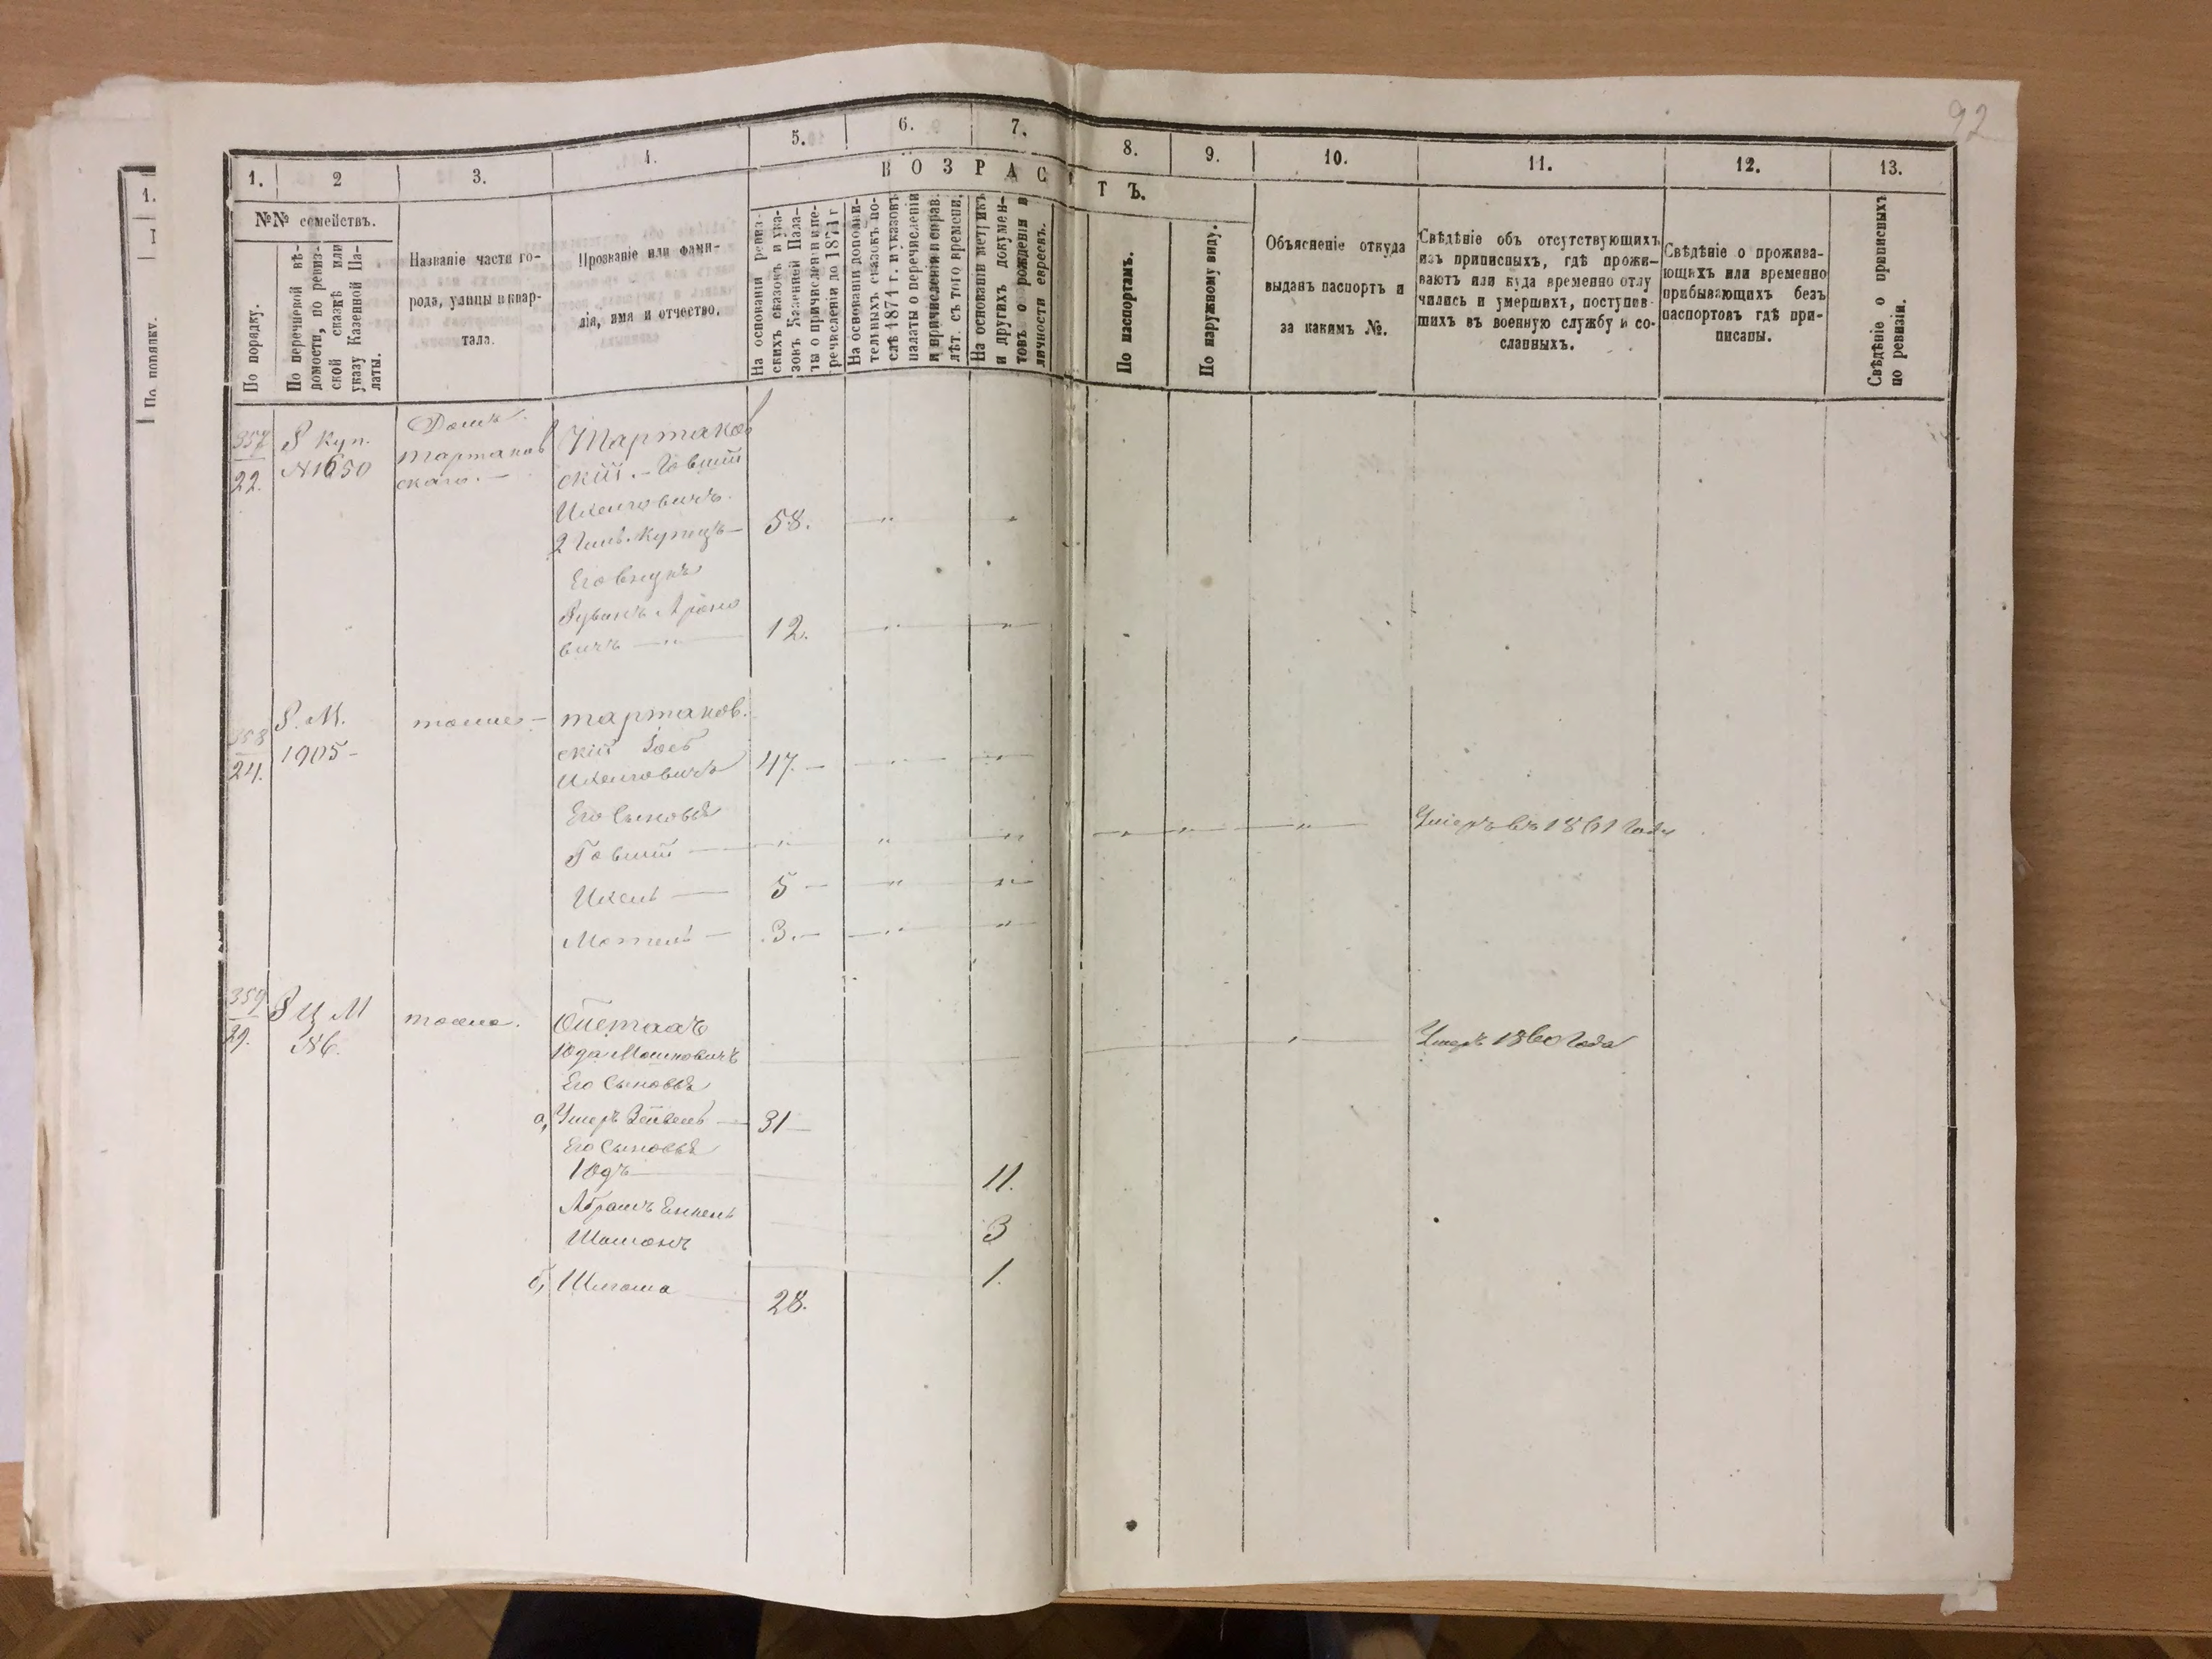 92
1.
По порядку.
1. 2 3. 4. 5. 6. 7. 8. 9. 10. 11. 12. 13.
№№ семействъ.
ВОЗРАСТЪ.
По порядку.
По перечневой вѣ-
домости, по ревиз-
ской сказкѣ или
указу Казенной Па-
латы.
Названіе части го-
рода, улицы и квар-
тала.
Прозваніе или фами-
лія, имя и отчество.
На основаніи ревиз-
скихъ сказокъ и ука-
зовъ Казенной Пала-
ты о причисленіи и пе-
речисленіи до 1871 г
На основаніи дополни-
тельныхъ сказокъ по-
слѣ 1871 г. и указовъ
палаты о перечисленіи
и причисленіи и справ.
лѣт. съ того времени.
На основаніи метрикъ
и другихъ докумен-
товъ о рожденіи и
личности евреевъ.
По паспортамъ.
По наружному виду.
Объясненіе откуда
выданъ паспортъ и
за какимъ №.
Свѣдѣніе объ отсутствующихъ
изъ приписныхъ, гдѣ прожи-
ваютъ или куда временно отлу
чились и умершихъ, поступив-
шихъ въ военную службу и со-
сланныхъ.
Свѣдѣніе о прожива-
ющихъ или временно
прибывающихъ безъ
паспортовъ гдѣ при-
писаны.
Свѣдѣніе о приписныхъ
по ревизіи.
357
22.
Р Куп.
№1650
Домъ
Тартаков
скаго. —
Тартаков
скій. — Говшій
Ихелговичъ
2 Гил. Купецъ — 58. " "
Его внукъ
Рувинъ Ароно
вичъ — " — 12. " "
358
24.
Р. М.
1905 —
тоже —
Тартаков.
скій Іосъ
Ихелговичъ 47. — " "
Его Сыновья
Говшій — " " " " " " Умеръ въ 1861 Году
Ихель — 5 — " "
Мотель — 3. — " "
359
29.
Р Ц М
№6.
тоже.
Юда Мошковичъ " Умеръ 1860 Года
Его Сыновья
а, Умеръ Зейвель — 31 —
Его Сыновья
Юдъ — 11.
Абрамъ Енкель 3
Шлиома 1.
б, Шлиома 28.